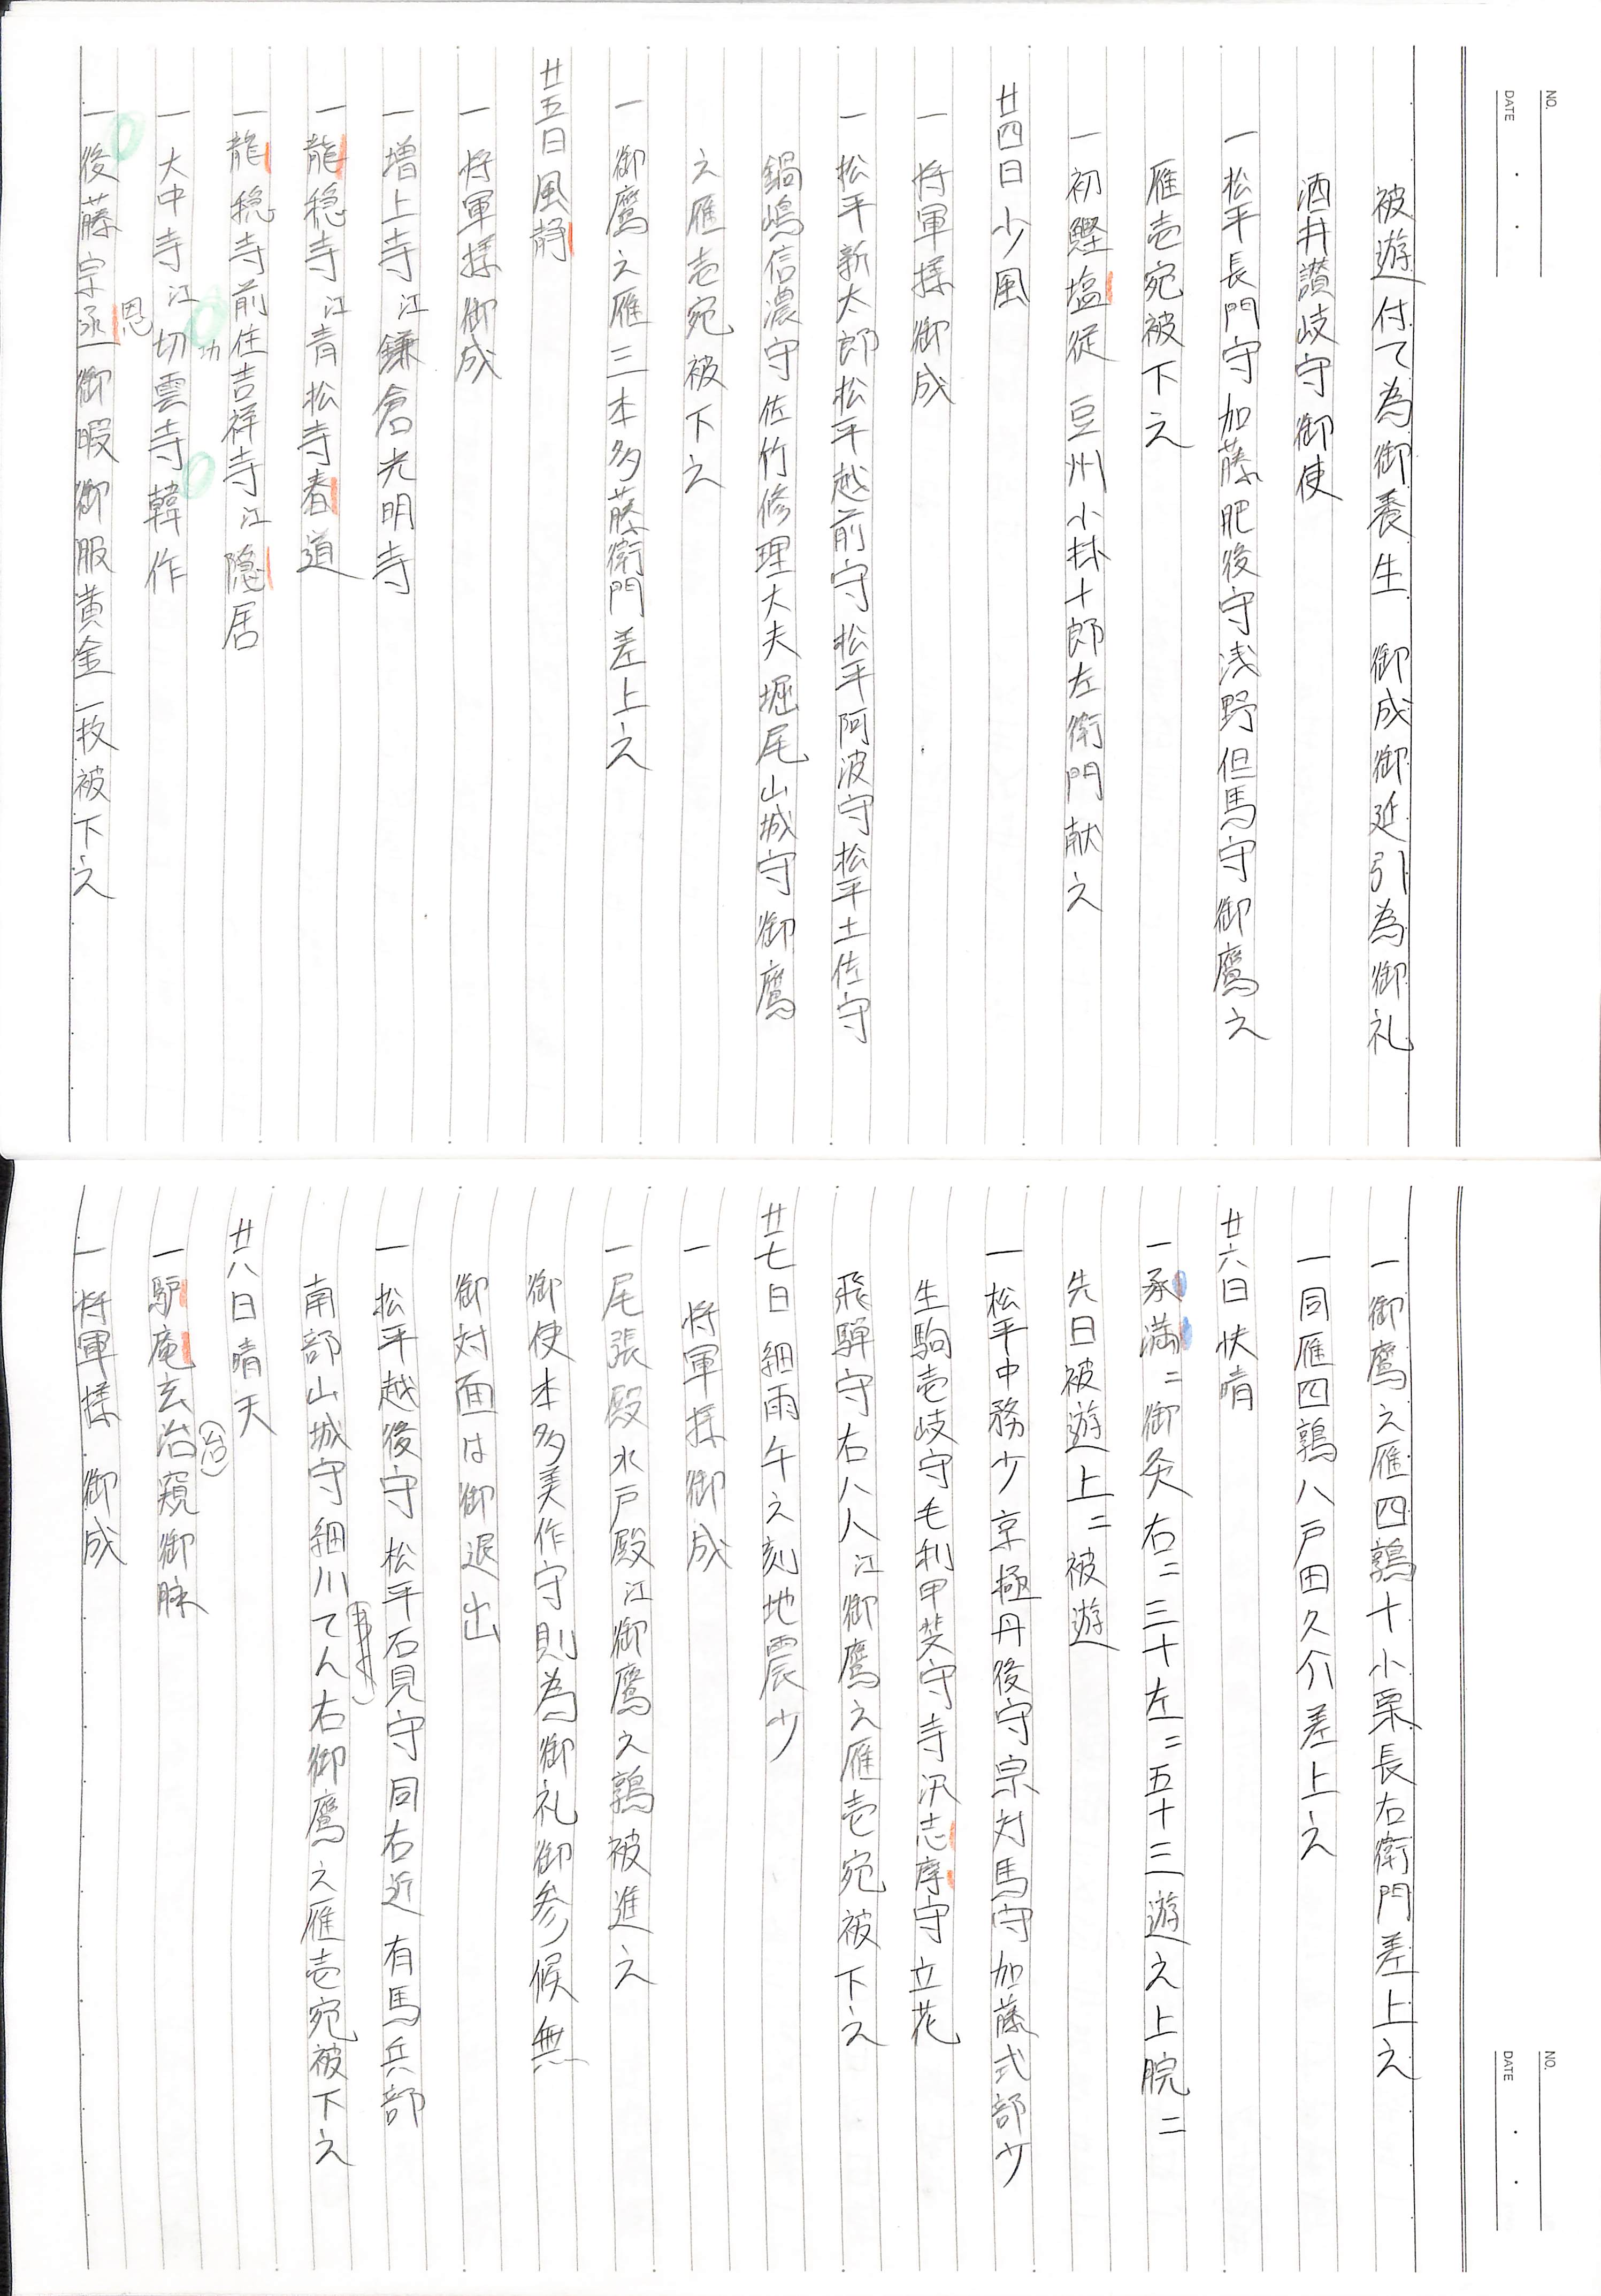 NO.
DATE
被遊付て為御養生 御成御延引為御礼
酒井讃岐守御使
一松平長門守加藤肥後守浅野但馬守御鷹之
雁壱宛被下之
一初鰹塩従 豆州小林十郎左衛門献之
廿四日少風
一 将軍様御成
一松平新太郎松平越前守松平阿波守松平土佐守
鍋嶋信濃守佐竹修理大夫堀尾山城守御鷹
之雁壱宛被下之
一 御鷹之雁三本多藤衛門差上之
廿五日風静
一 将軍様御成
一増上寺江鎌倉光明寺
一龍穏寺江青松寺春道
一龍穏寺前住吉祥寺江隠居
一大中寺江切雲寺韓作
功
一後藤宗丞御暇御服黄金一枚被下之
恩
NO.
DATE
一御鷹之雁四鶉十小栗長右衛門差上之
一同雁四鶉八戸田久介差上之
廿六日快晴
一承満ニ御灸右ニ三十左ニ五十三遊之上脘ニ
先日被遊上ニ被遊
一松平中務少京極丹後守宗対馬守加藤式部少
生駒壱岐守毛利甲斐守寺沢志摩守立花
飛騨守右八人江御鷹之雁壱宛被下之
廿七日 細雨午之刻地震少
一 将軍様御成
一尾張殿水戸殿江御鷹之鶉被進之
御使本多美作守則為御礼御参候無
御対面は御退出
一松平越後守松平石見守同右近有馬兵部
南部山城守細川てん右御鷹之雁壱宛被下之
廿八日晴天
一驢庵玄治窺御脉
(冶)
一将軍様 御成